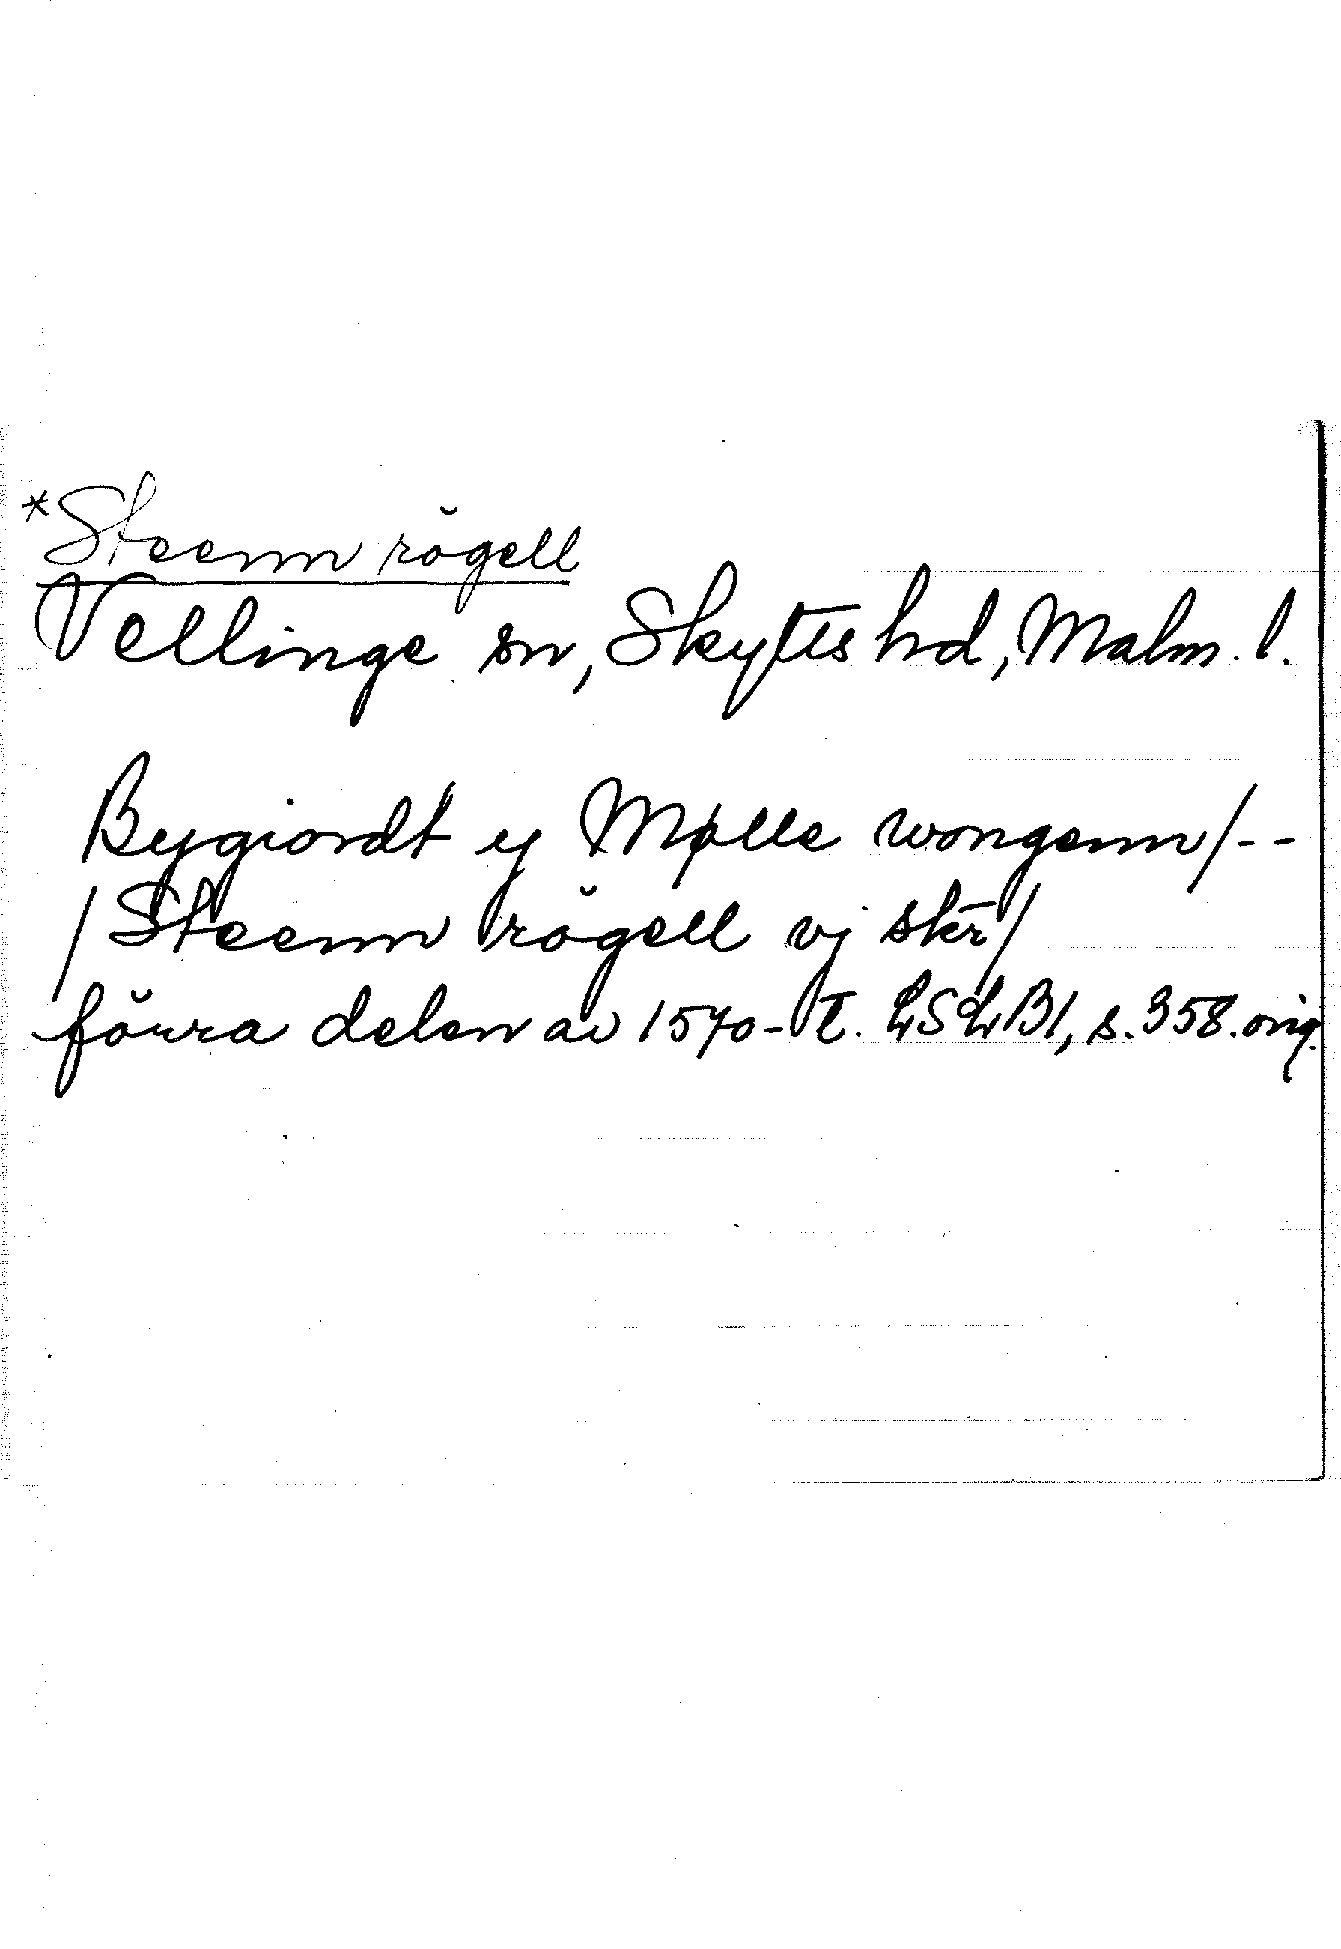 *Steenn rögell
Vellinge sn, Skytts hd, Malm. l.
Bygiordt y Mølle wongenn/--
/Steenn rögell vj skr/
förra delen av 1570-t. LSLB1, s. 358. orig.